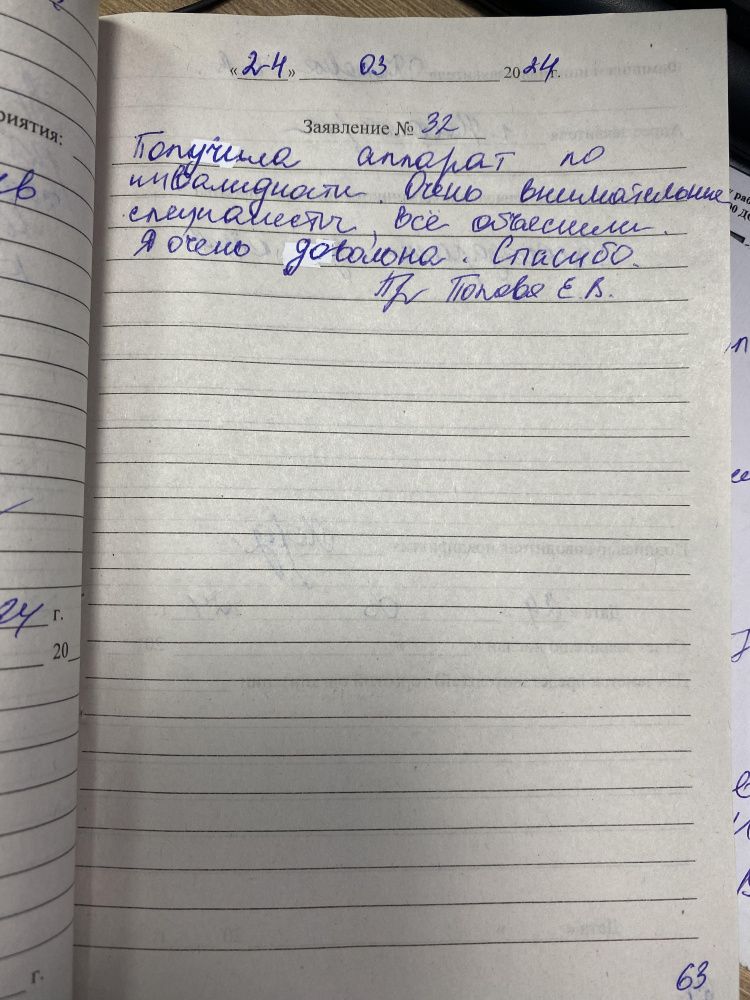 «24» 03 2024г.
Заявление № 32
Получила аппарат по
инвалидности. Очень внимательные
специалисты, всё объяснили.
Я очень довольна. Спасибо.
Попова Е.В.
риятия:
24 г.
20
г.
63